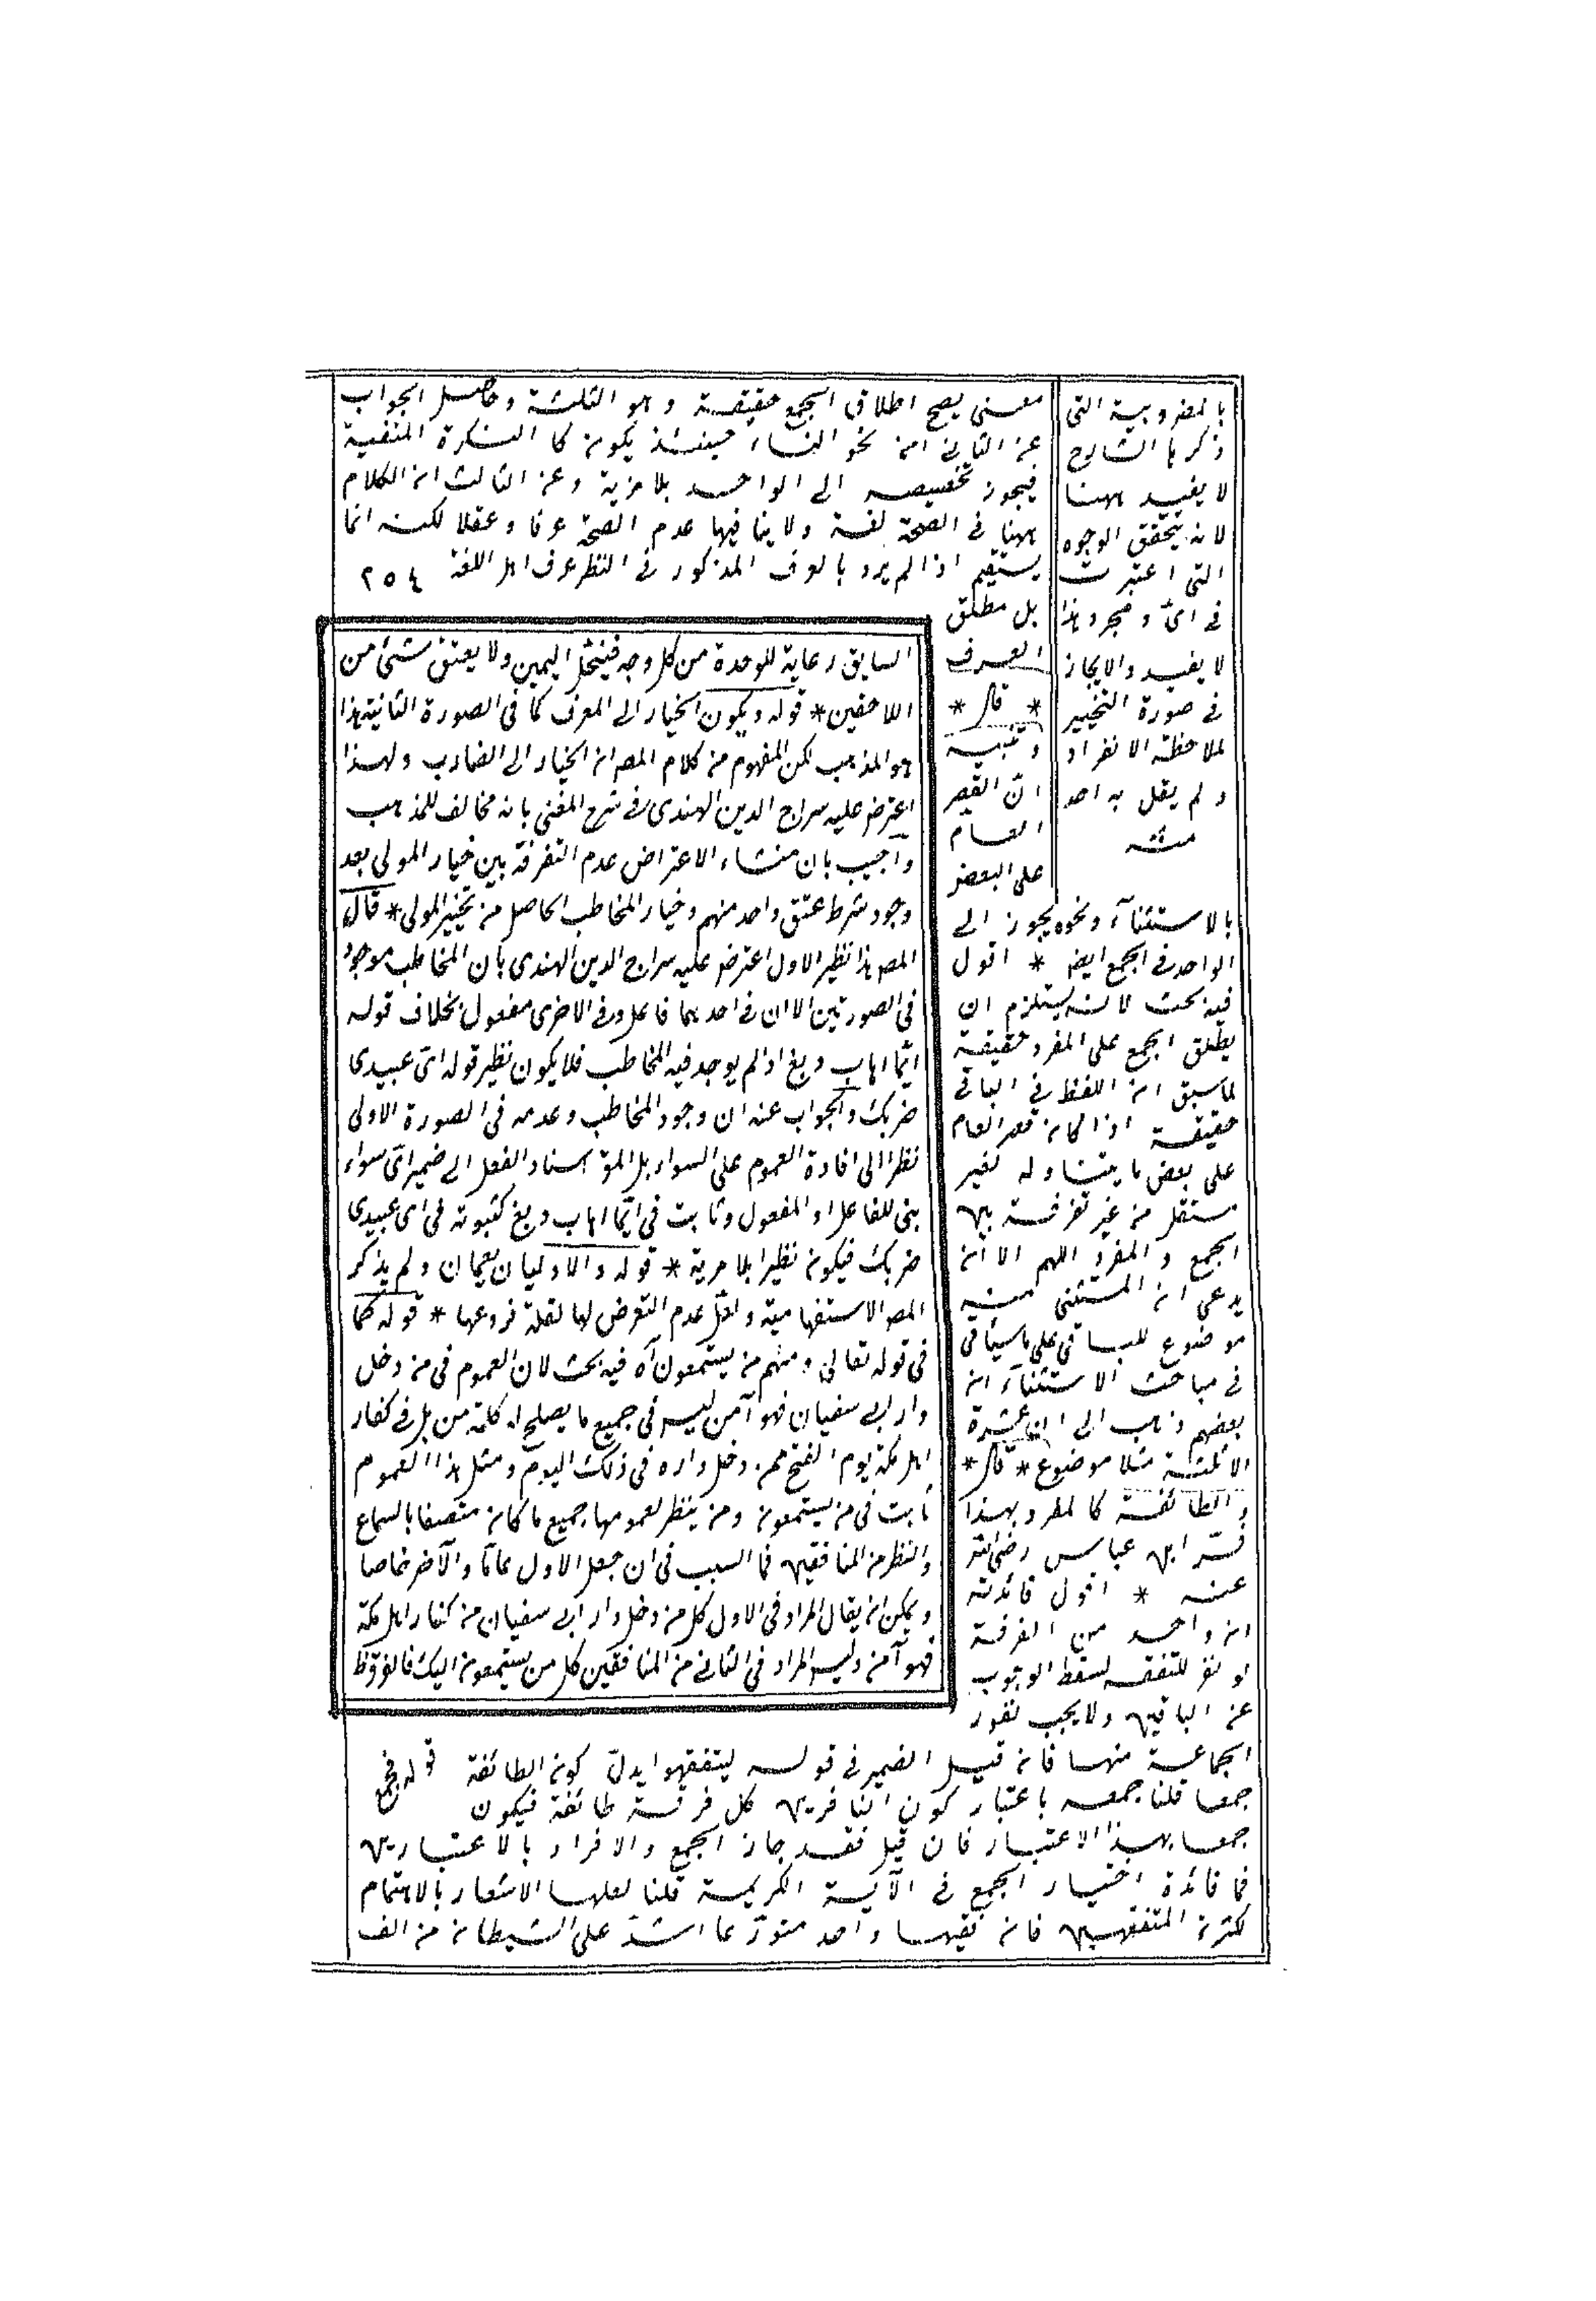 معنى يصح اطلاق الجمع حقيقة وهو الثلثة وحاصل الجواب
عن الثانى ان نحو النساء حينئذ يكون كالنكرة المنفية
فيجوز تخصيصه الى الواحد بلا مزية وعن الثالث ان الكلام
ههنا فى الصحة لغة ولا ينافيها عدم الصحة عرفا وعقلا لكنه انما
يستقيم اذا لم يرد بالعرف المذكور فى النظر عرف اهل اللغة ٢٥٤
بل مطلق
العرف
* قال *
وتنبيه
انّ القصر
العام
على البعض
بالاستثناء ونحوه يجوز الى
الواحد فى الجمع ايض * اقول
فيه بحث لانه يستلزم ان
يطلق الجمع على المفرد حقيقة
لما سبق ان اللفظ فى الباقى
حقيقة اذا كان قصر العام
على بعض ما يتناوله لغير
مستقل من غير تفرقة بين
الجمع والمفرد اللهم الا ان
يدعى ان المستثنى منه
موضوع للباقى على ما سيأتى
فى مباحث الاستثناء ان
بعضهم ذهب الى ان عشرة
الا ثلثة مثلا موضوع * قال *
والطائفة كالمفرد بهذا
فسّر ابن عباس رضى الله
عنه * اقول فائدته
ان واحد من الفرقة
لو نفر للتفقه لسقط الوجوب
عن الباقين ولا يجب نفور
الجماعة منها فان قيل الضمير فى قوله ليتفقهوا يدلّ كون الطائفة
جمعا قلنا جمعه باعتبار كون النافرين كل فرقة طائفة فيكون
جمعا بهذا الاعتبار فان قيل فقد جاز الجمع والافراد بالاعتبارين
فما فائدة اختيار الجمع فى الآية الكريمة قلنا لعلها الاشعار بالاهتمام
لكثرة المتفقهين فان فقيها واحد متورّعا اشدّ على الشيطان من الف
بالمضروبية التى
ذكرها الشارح
لا يفيد ههنا
لانه يتحقق الوجوه
التى اعتبرت
فى اىّ ومجرد هذا
لا يفيد والايجاز
فى صورة التخيير
لملاحظة الانفراد
ولم يقل به احد
منه
السابق رعاية للوحدة من كل وجه فينحل اليمين ولا يعتق شئ من
اللاحقين * قوله ويكون الخيار الى المعرف كما فى الصورة الثانية هذا
هو المذهب لكن المفهوم من كلام المص ان الخيار الى الضارب ولهذا
اعترض عليه سراج الدين الهندى فى شرح المغنى بانه مخالف للمذهب
واجيب بان منشاء الاعتراض عدم التفرقة بين خيار المولى بعد
وجود شرط عتق واحد منهم وخيار المخاطب الحاصل من تخيير المولى * قال
المص هذا نظير الاول اعترض عليه سراج الدين الهندى بان المخاطب موجود
فى الصورتين الا ان فى احديهما فاعل وفى الاخرى مفعول بخلاف قوله
ايّما اهاب دبغ اذ لم يوجد فيه المخاطب فلا يكون نظير قوله اىّ عبيدى
ضربك والجواب عنه ان وجود المخاطب وعدمه فى الصورة الاولى
نظرا الى افادة العموم على السواء بل المؤ اسناد الفعل الى ضمير اىّ سواء
بنى للفاعل او المفعول وثابت فى ايّما اهاب دبغ كثبوته فى اى عبيدى
ضربك فيكون نظيرا بلا مرية * قوله والاوليان يعمان ولم يذكر
المص الاستفهامية ولعل عدم التعرض لها لقلة فروعها * قوله كما
فى قوله تعالى ومنهم من يستمعون آه فيه بحث لان العموم فى من دخل
دار ابى سفيان فهو آمن ليس فى جميع ما يصلح له كلمة من بل فى كفار
اهل مكة يوم الفتح ممن دخل داره فى ذلك اليوم ومثل هذا العموم
ثابت فى من يستمعون ومن ينظر لعمومها جميع ما كان متصفا بالسماع
والنظر من المنافقين فما السبب فى ان جعل الاول عامّا والآخر خاصا
ويمكن ان يقال المراد فى الاول كل من دخل دار ابى سفيان من كفار اهل مكة
فهو آمن وليس المراد فى الثانى من المنافقين كل من يستمعون اليك فالفرق ظ
قوله فجمع